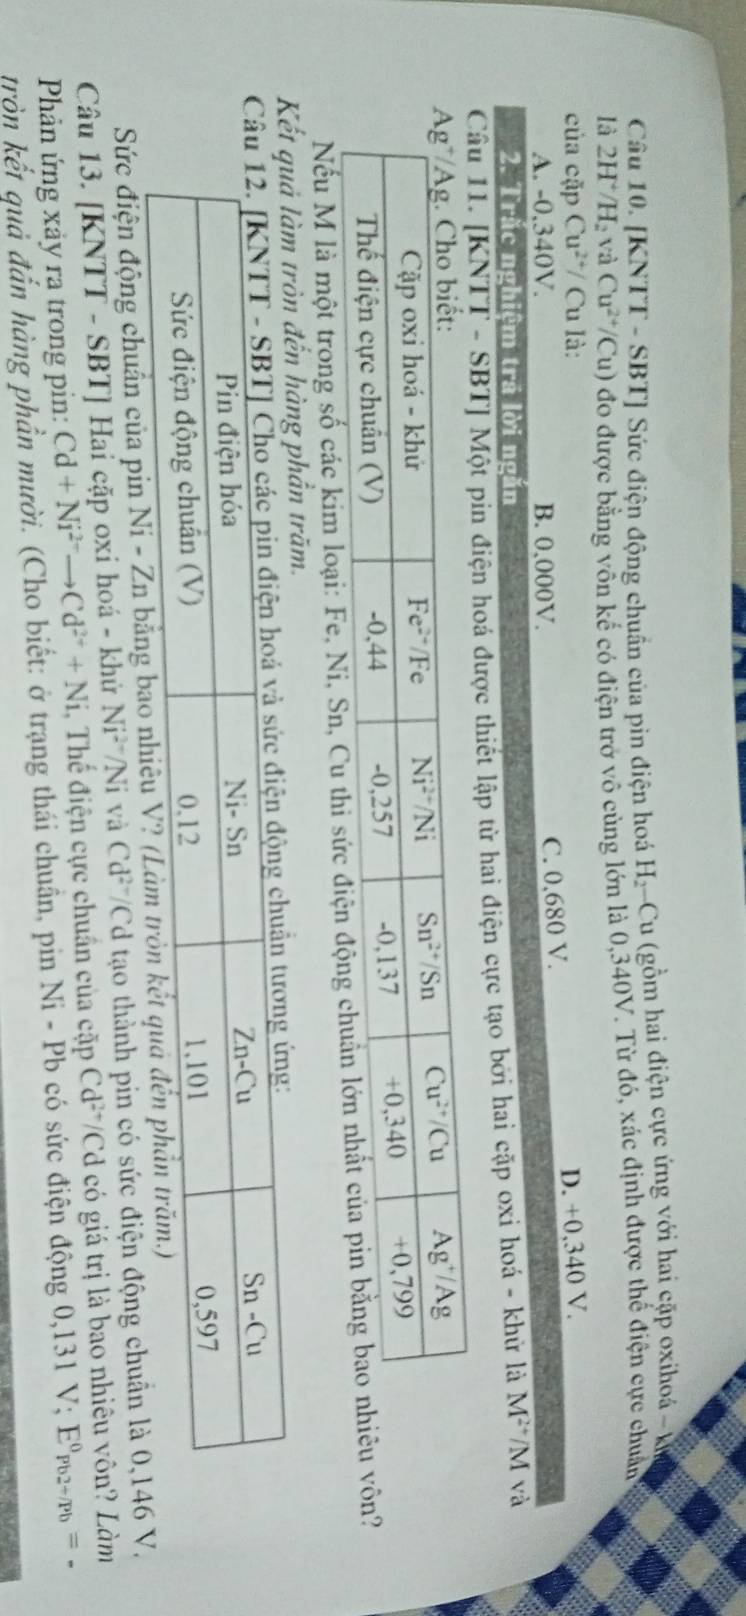 Câu 10. [KNTT - SBT] Sức điện động chuẩn của pin điện hoá H₂–Cu (gồm hai điện cực ứng với hai cặp oxihoá –
là 2H⁺/H₂ và Cu²⁺/Cu) đo được bằng vôn kế có điện trở vô cùng lớn là 0,340V. Từ đó, xác định được thế điện cực chuẩn
của cặp Cu²⁺/ Cu là:
A. -0,340V. B. 0,000V. C. 0,680 V. D. +0,340 V.
2. Trắc nghiệm trả lời ngắn
Câu 11. [KNTT - SBT] Một pin điện hoá được thiết lập từ hai điện cực tạo bởi hai cặp oxi hoá - khử là M²⁺/M và
Ag⁺/Ag. Cho biết:
Cặp oxi hoá - khử Fe²⁺/Fe Ni²⁺/Ni Sn²⁺/Sn Cu²⁺/Cu Ag⁺/Ag
Thế điện cực chuẩn (V) -0,44 -0,257 -0,137 +0,340 +0,799
Nếu M là một trong số các kim loại: Fe, Ni, Sn, Cu thì sức điện động chuẩn lớn nhất của pin bằng bao nhiêu vôn?
Kết quả làm tròn đến hàng phần trăm.
Câu 12. [KNTT - SBT] Cho các pin điện hoá và sức điện động chuẩn tương ứng:
Pin điện hóa Ni- Sn Zn-Cu Sn -Cu
Sức điện động chuẩn (V) 0,12 1,101 0,597
Sức điện động chuẩn của pin Ni - Zn bằng bao nhiêu V? (Làm tròn kết quả đến phần trăm.)
Câu 13. [KNTT - SBT] Hai cặp oxi hoá - khử Ni²⁺/Ni và Cd²⁺/Cd tạo thành pin có sức điện động chuẩn là 0,146 V.
Phản ứng xảy ra trong pin: Cd + Ni²⁺→Cd²⁺ + Ni, Thế điện cực chuẩn của cặp Cd²⁺/Cd có giá trị là bao nhiêu vôn? Làm
tròn kết quả đến hàng phần mười. (Cho biết: ở trạng thái chuẩn, pin Ni - Pb có sức điện động 0,131 V; E⁰ Pb2+/Pb = -